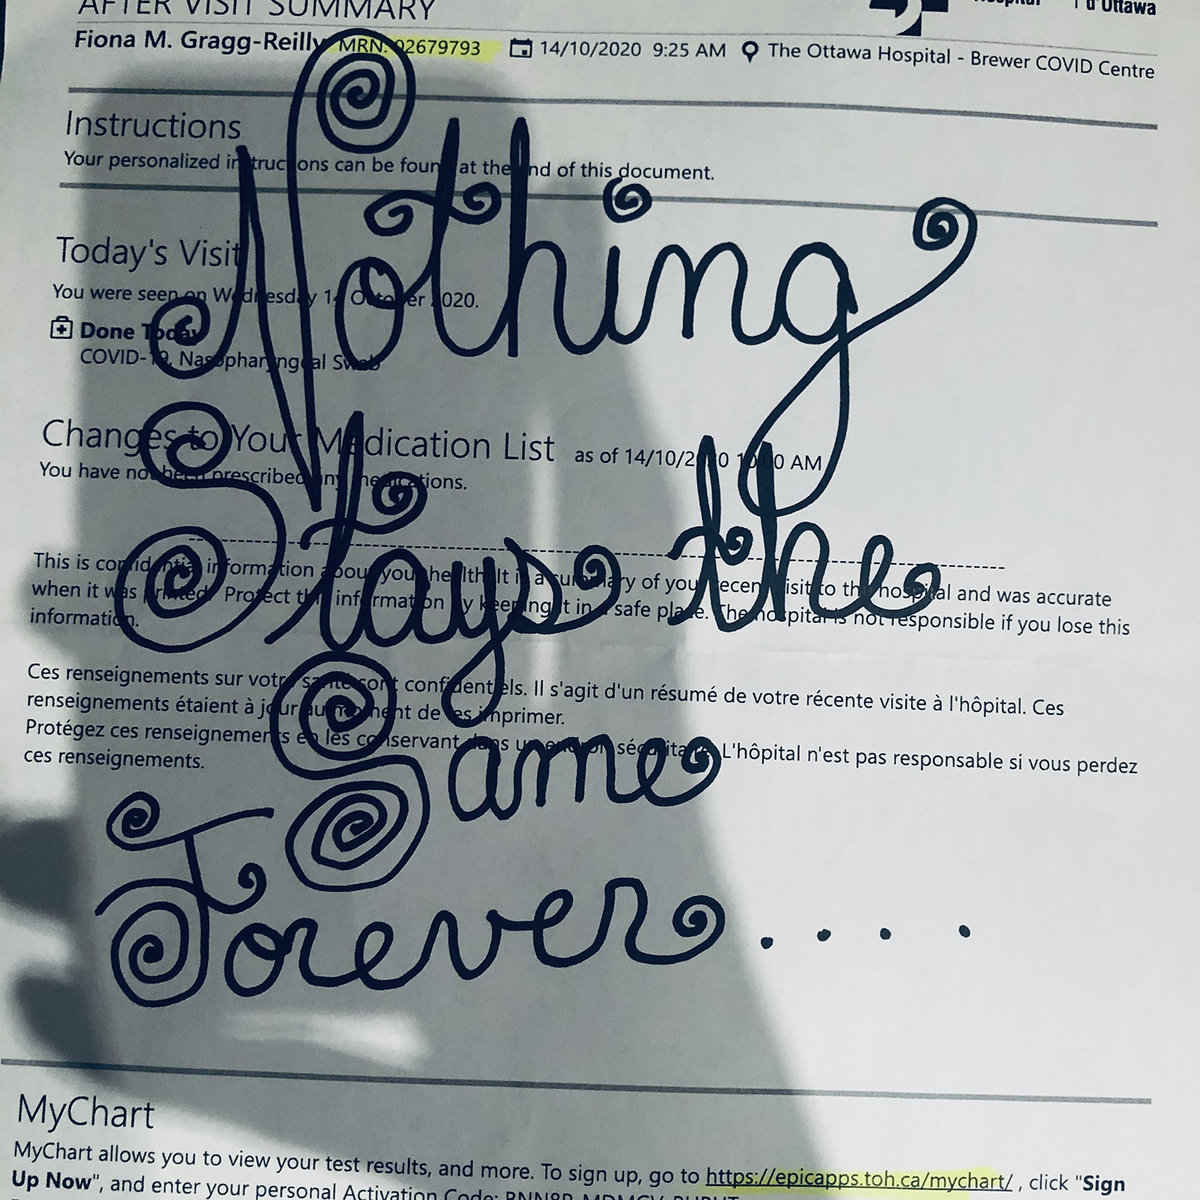 AFTER VISIT SUMMARY
Hospital | d'Ottawa
Fiona M. Gragg-Reilly MRN: 02679793 14/10/2020 9:25 AM The Ottawa Hospital - Brewer COVID Centre
Instructions
Your personalized instructions can be found at the end of this document.
Today's Visit
You were seen on Wednesday 14 October 2020.
Done Today
COVID-19, Nasopharyngeal Swab
Nothing
Changes to Your Medication List as of 14/10/2020 AM
You have not been prescribed any medications.
Stays the
This is confidential information about your health. It is a summary of your recent visit to the hospital and was accurate
when it was printed. Protect this information by keeping it in a safe place. The hospital is not responsible if you lose this
information.
Ces renseignements sur votre santé sont confidentiels. Il s'agit d'un résumé de votre récente visite à l'hôpital. Ces
renseignements étaient à jour au moment de les imprimer.
Protégez ces renseignements en les conservant dans un endroit sécuritaire. L'hôpital n'est pas responsable si vous perdez
ces renseignements.
Same
Forever....
MyChart
MyChart allows you to view your test results, and more. To sign up, go to https://epicapps.toh.ca/mychart/ , click "Sign
Up Now", and enter your personal Activation Code: